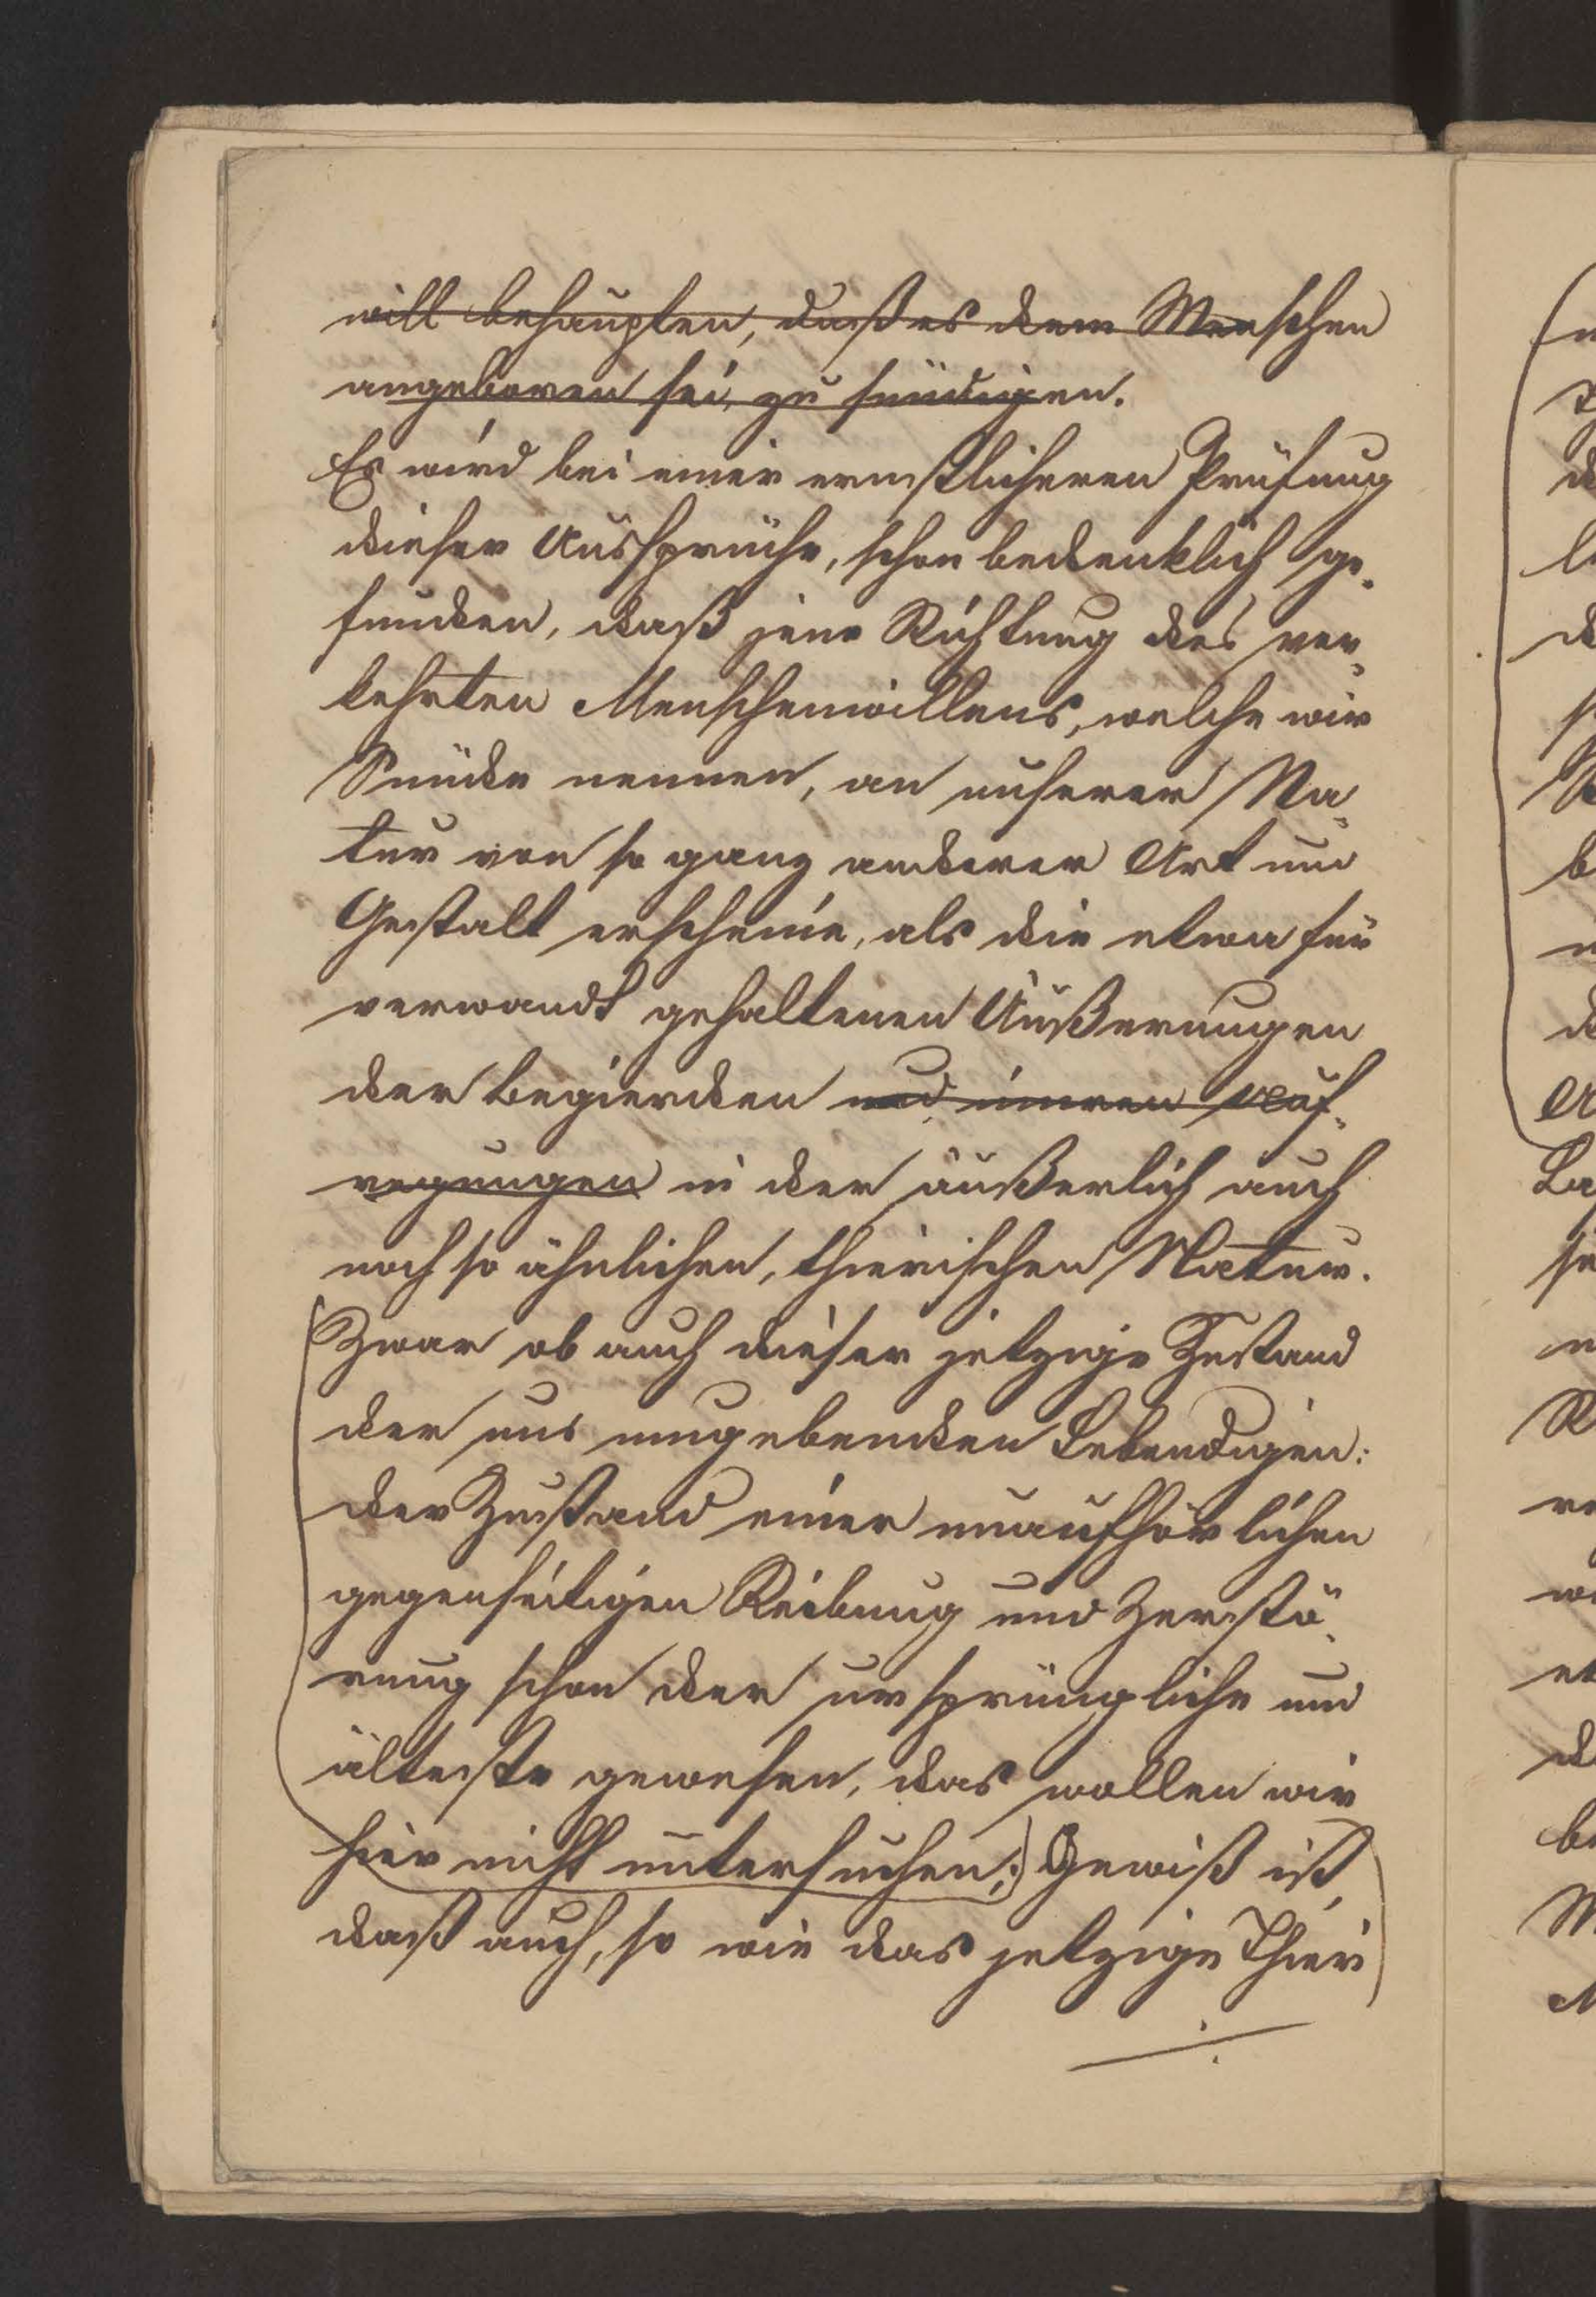 will behaupten, daß es dem Menschen
angeboren sei, zu sündigen.
Es wird bei einer ernstlicheren Prüfung
dieser Aussprüche, schon bedenklich ge-
funden, daß jene Richtung des ver-
kehrten Menschenwillens, welche wir
Sünde nennen, an unserer Na-
tur von so ganz anderer Art und
Gestalt erscheine, als die etwa für
verwandt gehaltenen Äußerungen
der Begierden und inneren Auf-
regungen in der äußerlich auch
noch so ähnlichen, thierischen Natur.
Zwar ob auch dieser jetzige Zustand
der uns umgebenden Lebendigen:
der Zustand einer unaufhörlichen
gegenseitigen Reibung und Zerstö-
rung schon der ursprüngliche und
älteste gewesen, das wollen wir
hier nicht untersuchen;) Gewiß ist,
daß auch, so wie das jetzige Thier